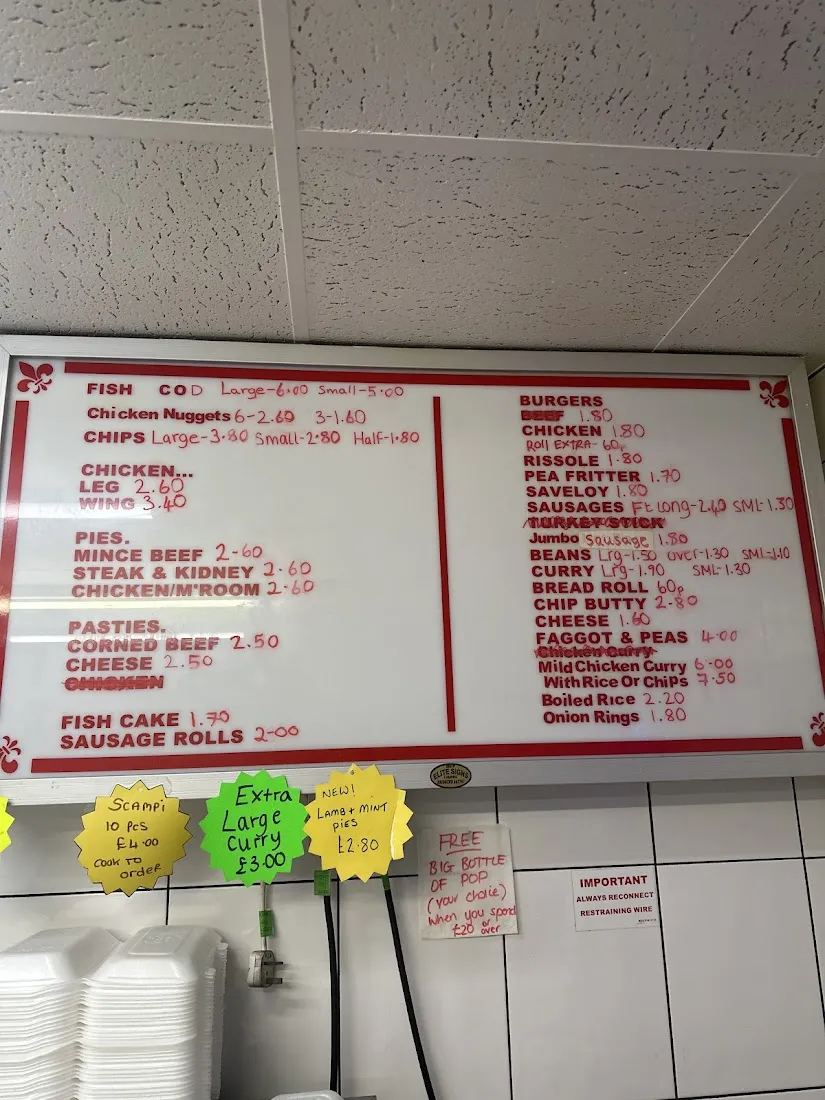 FISH COD Large-6.00 Small-5.00
Chicken Nuggets 6-2.60 3-1.60
CHIPS Large-3.80 Small-2.80 Half-1.80
CHICKEN...
LEG 2.60
WING 3.40
PIES.
MINCE BEEF 2-60
STEAK & KIDNEY 2.60
CHICKEN/M'ROOM 2.60
PASTIES.
CORNED BEEF 2.50
CHEESE 2.50
CHICKEN
FISH CAKE 1.70
SAUSAGE ROLLS 2-00
BURGERS
BEEF 1.80
CHICKEN 1.80
Roll EXTRA- 60p
RISSOLE 1-80
PEA FRITTER 1.70
SAVELOY 1.80
SAUSAGES Ft Long-2.40 SML-1.30
TURKEY STICK
Jumbo Sausage 1.80
BEANS Lrg-1.50 over-1.30 SML-1.10
CURRY Lrg-1.90 SML-1.30
BREAD ROLL 60p
CHIP BUTTY 2-80
CHEESE 1.60
FAGGOT & PEAS 4.00
Chicken Curry
Mild Chicken Curry 6-00
With Rice Or Chips 7.50
Boiled Rice 2.20
Onion Rings 1.80
ELITE SIGNS
SCAMPI
10 PCS
£4.00
COOK TO
order
Extra
Large
Curry
£3.00
NEW!
LAMB + MINT
PIES
£2.80
FREE
BIG BOTTLE
OF POP
(your choice)
When you spend
£20 or over
IMPORTANT
ALWAYS RECONNECT
RESTRAINING WIRE